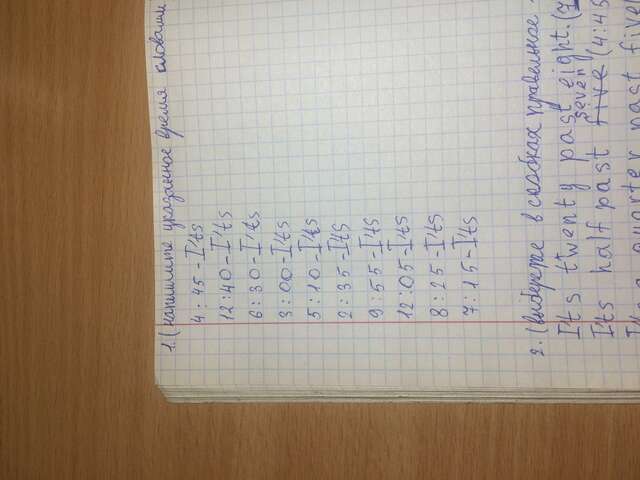 1. (напишите указанное время словами
4:45 - I'ts
12:40 - I'ts
6:30 - I'ts
3:00 - I'ts
5:10 - I'ts
2:35 - I'ts
9:55 - I'ts
12:05 - I'ts
8:25 - I'ts
7:15 - I'ts
2. (выберите в скобках правильное
I'ts twenty past eight. (7
I'ts half past five seven (4:45
quarter past five